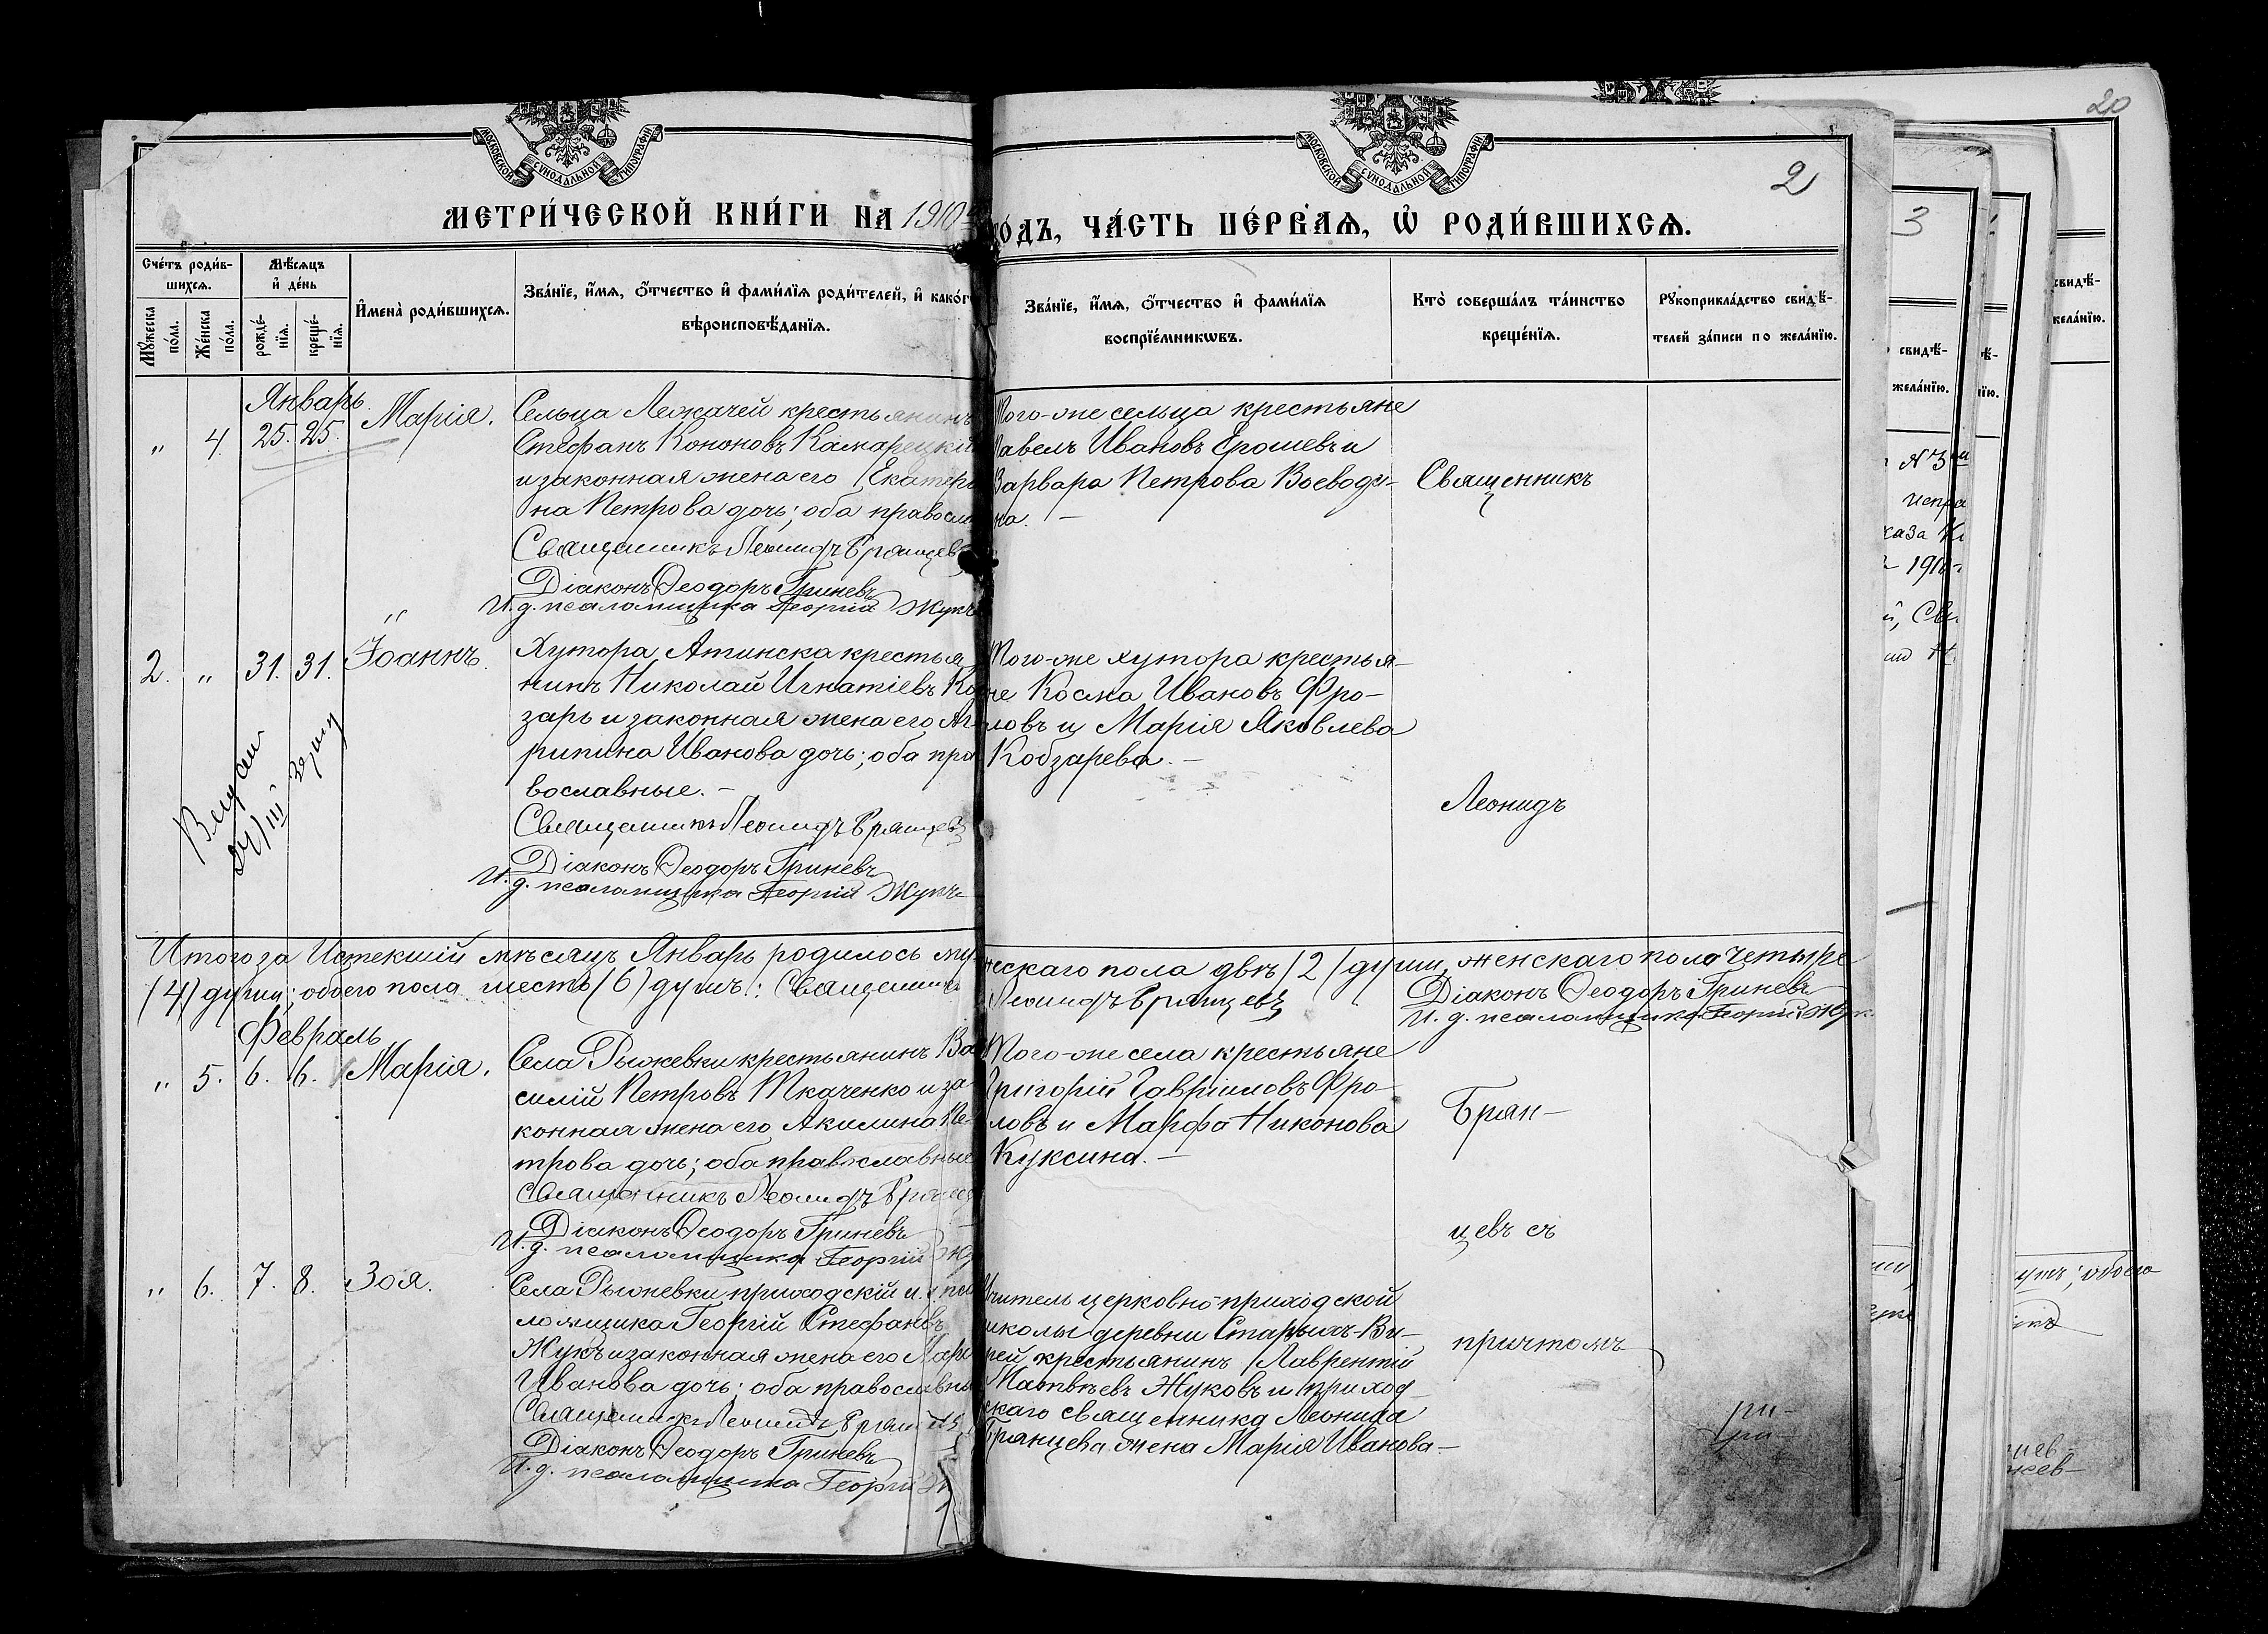 20
МОСКОВСКОЙ СѴНОДАЛЬНОЙ ТИПОГРАФІИ
МОСКОВСКОЙ СѴНОДАЛЬНОЙ ТИПОГРАФІИ
2
МЕТРИ́ЧЕСКОЙ КНИ́ГИ НА 1910
ГО́ДЪ, ЧА́СТЬ ПЕ́РВАѦ, Ѡ РОДИ́ВШИХСѦ.
3
Сче́тъ роди́в-
шихсѧ.
Мѣ́сѧцъ
и҆ де́нь
Мꙋ́жеска по́ла.
Же́нска по́ла.
рожде́-
нїѧ.
креще́-
нїѧ.
И҆мена̀ роди́вшихсѧ.
Зва́нїе, и҆́мѧ, ѻ҆́тчество и҆ фами́лїѧ роди́телей, и҆ како́г
вѣроисповѣ́данїѧ.
Зва́нїе, и҆́мѧ, ѻ҆́тчество и҆ фами́лїѧ
воспрїе́мникѡвъ.
Кто̀ соверша́лъ та́инство
креще́нїѧ.
Рꙋкоприкла́дство свидѣ́-
телей за́писи по жела́нїю.
Январь.
" 4. 25. 25. Марія.
Сельца Лежачей крестьянинъ
Стефанъ Кононовъ Камарецкій
и законная жена его Екатери
на Петрова дочь; оба правосл
Священникъ Леонидъ Брянцев
Діаконъ Ѳеодоръ Гриневъ
И. д. псаломщика Георгій Жукъ
Того-же сельца крестьяне
Павелъ Ивановъ Ерошевъ и
Варвара Петрова Воеводи-
на. —
Священникъ
"
2. " 31. 31. Іоаннъ.
Хутора Атинска крестья
нинъ Николай Игнатіевъ Ко
зарь и законная жена его Аг
рипина Иванова дочь; оба пра
вославные. —
Священникъ Леонидъ Брянцевъ
Діаконъ Ѳеодоръ Гриневъ
И. д. псаломщика Георгій Жукъ
Того-же хутора крестья-
не Косма Ивановъ Фро-
ловъ и Марія Яковлева
Кобзарева. —
Леонидъ
Итого за Истекшій мѣсяцъ Январь родилось му
жескаго пола двѣ (2) души, женскаго пола четыре
(4) души; обоего пола шесть (6) душъ: Священникъ
Леонидъ Брянцевъ
Діаконъ Ѳеодоръ Гриневъ
И. д. псаломщика Георгій Жук
Февраль
" 5. 6. 6. Марія.
Села Рыжевки крестьянинъ Ва
силій Петровъ Ткаченко и за
конная жена его Акилина Пе-
трова дочь; оба православные
Священникъ Леонидъ Брянцев
Діаконъ Ѳеодоръ Гриневъ
И. д. псаломщика Георгій Жу
Того-же села крестьяне
Григорій Гавріиловъ Фро-
ловъ и Марѳа Никонова
Куксина. —
Брян-
цевъ съ
" 6. 7. 8. Зоя.
Села Рыжевки приходскій и. д. пса
ломщика Георгій Стефановъ
Жукъ и законная жена его Мари
Иванова дочь; оба православны
Священникъ Леонидъ Брянцевъ
Діаконъ Ѳеодоръ Гриневъ
И. д. псаломщика Георгій Ж
Учитель церковно-приходской
школы деревни Старыхъ-Ви-
рей крестьянинъ Лаврентій
Матвѣевъ Жуковъ и приход-
скаго священника Леонида
Брянцева жена Марія Иванова —
причтомъ